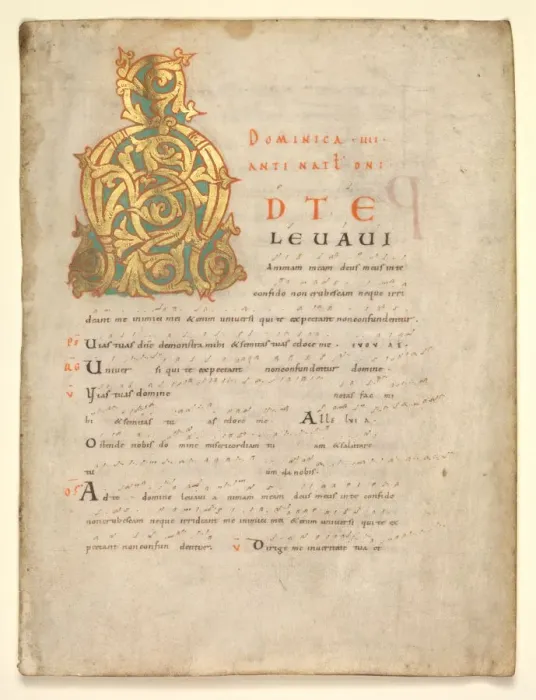 DOMINICA · IIII ·
ANTI NAT̅ DNI
AD TE
LEVAVI
Animam meam deus meus in te
confido non erubescam neque irri
deant me inimici mei & enim universi qui te expectant non confundentur.
PS Vias tuas dne demonstra mihi & semitas tuas edoce me · EVOVAE ·
RG Univer si qui te expectant non confundentur domine ·
V Vias tuas domine notas fac mi
hi & semitas tu as edoce me Alle luia ·
Ostende nobis do mine misericordiam tu am & salutare
tu um da nobis ·
OF Ad te domine levavi animam meam deus meus in te confido
non erubescam neque irrideant me inimici mei & enim universi qui te ex
pectant non confun dentur · V Dirige me in veritate tua et